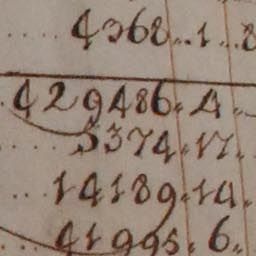 4368..1...8
429486.4.
5374.17.
14189.14.
41995.6.